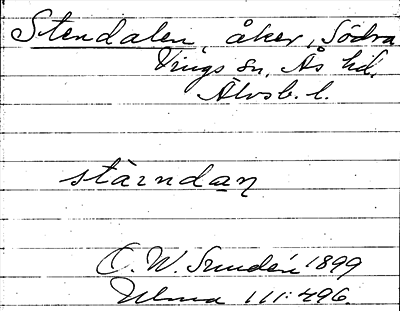 Stendalen, åker, Södra
Vings sn, Ås hd.
Älvsb. l.
stärndaɲ
O. W. Sundén 1899
Ulma 111:496.